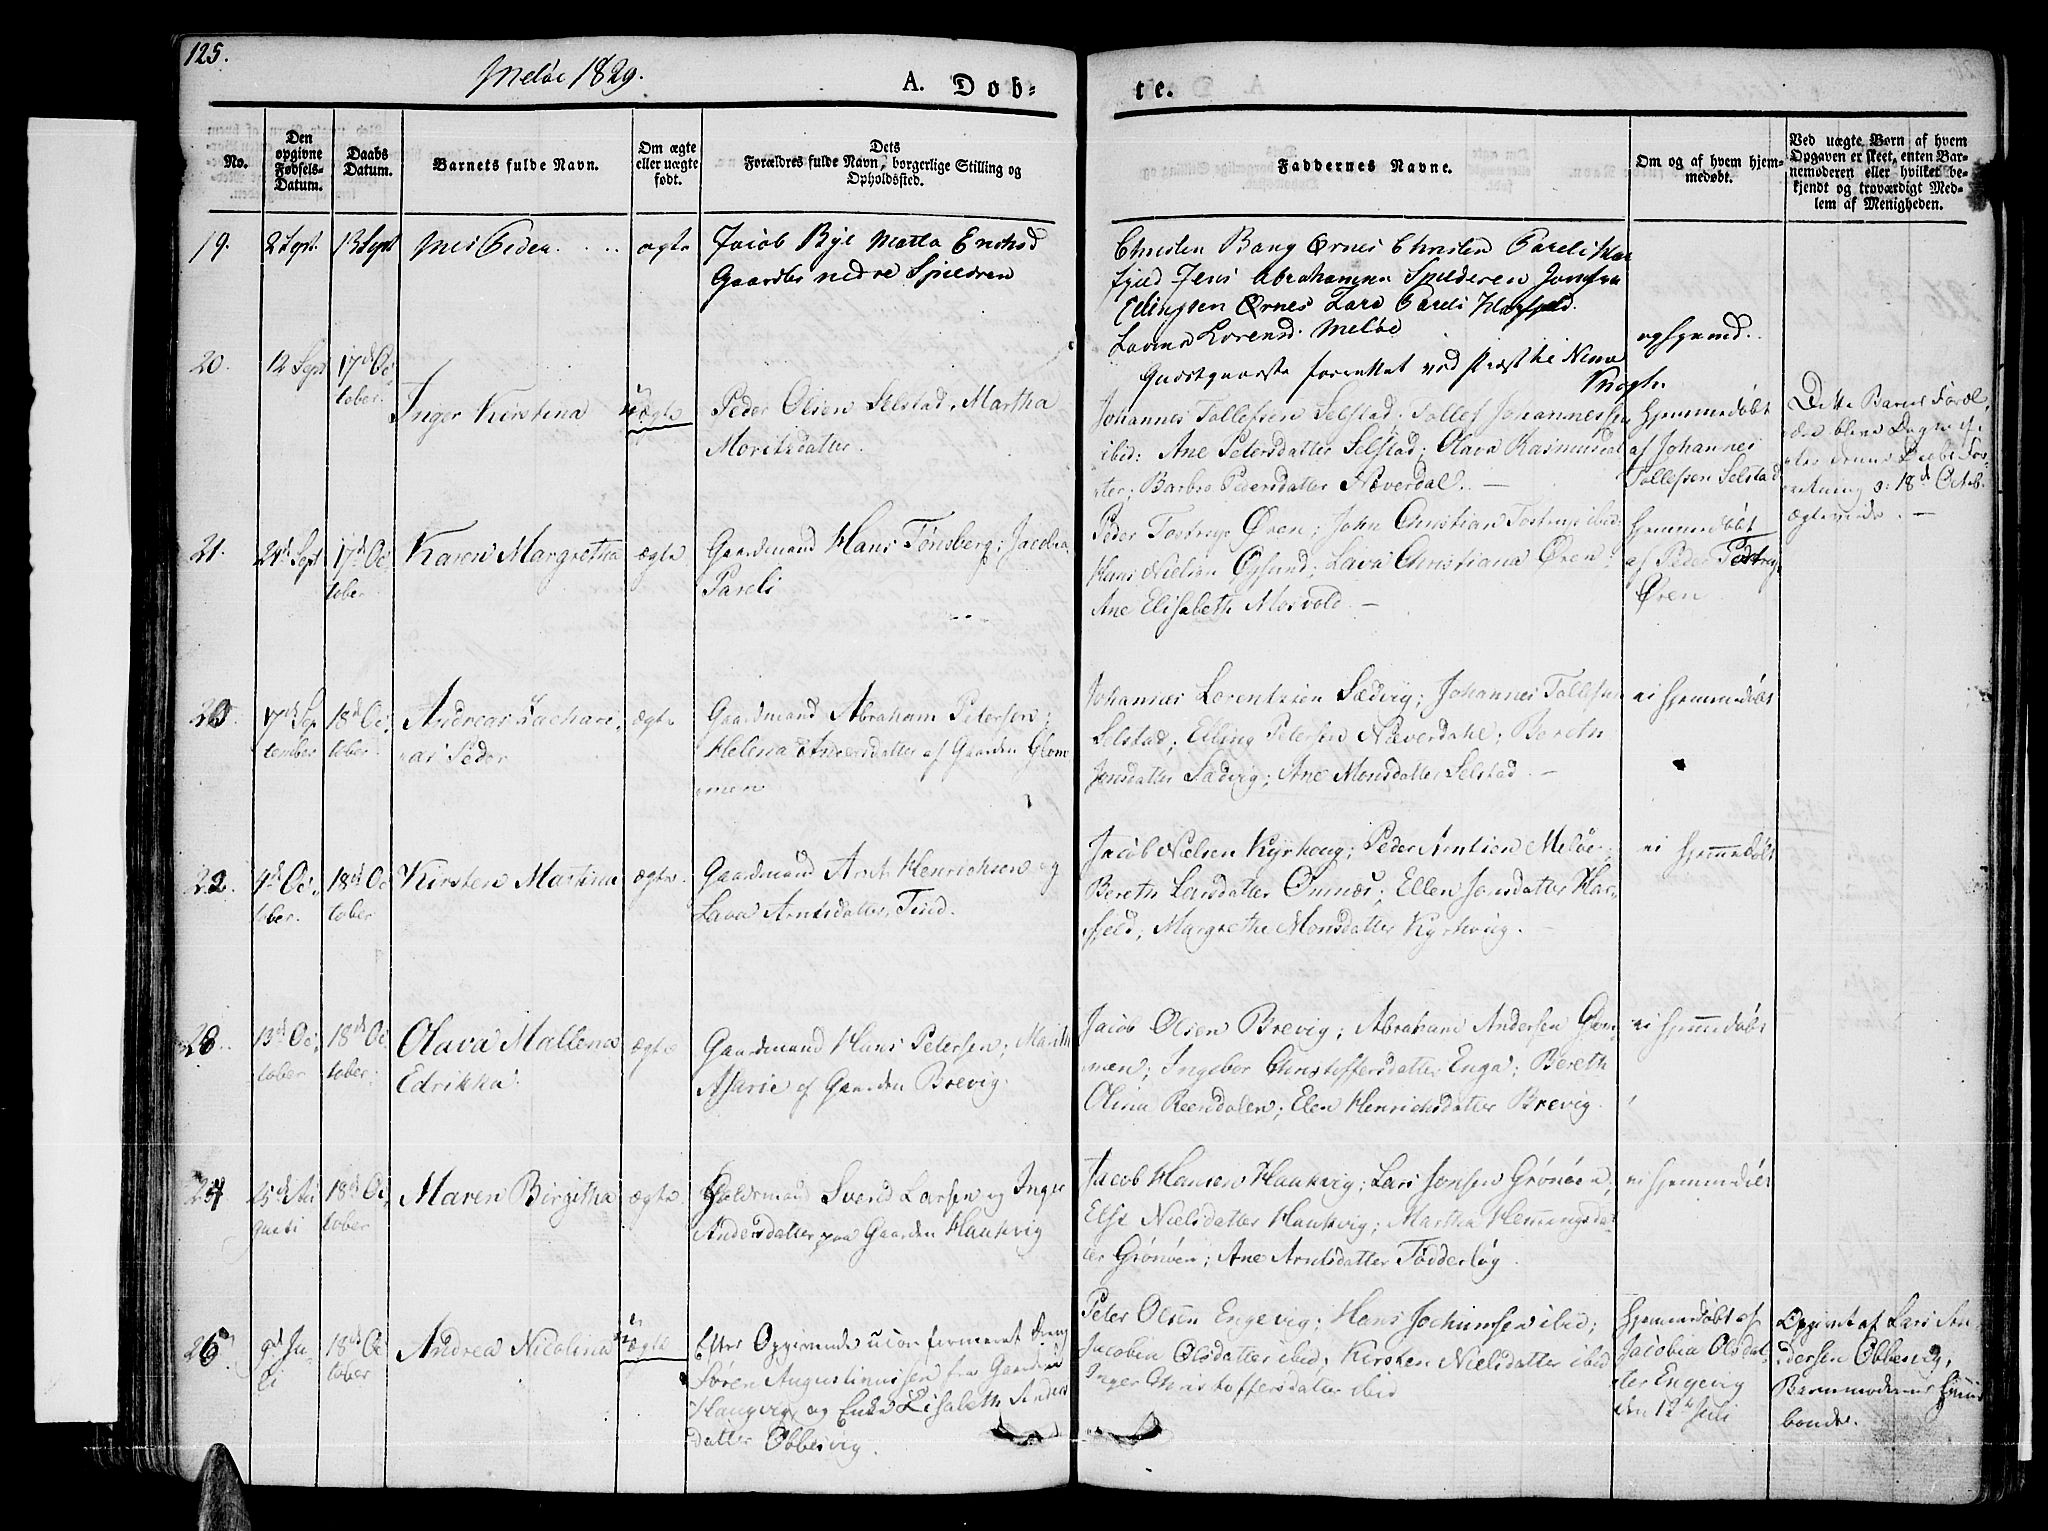 125.
Meløe 1829.
A. Døb-
te.
No.
Den
opgivne
Fødsels-
Datum.
Daabs
Datum.
Barnets fulde Navn.
Om ægte
eller uægte
født.
Dets
Forældres fulde Navn, borgerlige Stilling og
Opholdssted.
Faddernes Navne.
Om og af hvem hjem-
medøbt.
Ved uægte Børn af hvem
Opgaven er skeet, enten Bar-
nemoderen eller hvilket be-
kjendt og troværdigt Med-
lem af Menigheden.
19.
2 Sept.
13 Sept
Peder
ægte
Jacob
Gaardbr nedre Spildren
Christen Bang Ørnes Christen Pareli
Jens Abrahamsen Spilderen
Ellingsen Ørnes Lars Pareli
Lorensd. Meløe
forrettet ved
20.
12 Sept
17de Oc
tober.
Inger Kirstina
uægte
Peder Olsen Selstad, Martha
Moritsdatter.
Johannes Tollefsen Selstad; Tollef Johannessen
ibid: Ane Petersdatter Selstad; Olava Rasmusdat
ter; Barbro Pedersdatter Næverdal. —
Hjemmedøbt
af Johannes
Tollefsen Selstad
Dette Barns Foræl
dre bleve Dagen ef
ter denne
retning d: 18de Octob.
ægteviede. —
21.
24de Sept
17de Oc
tober
Karen Margretha
ægte
Gaardmand Hans Tønsberg; Jacobia
Pareli
Peder Tostrup Øren; John Christian Tostrup ibid
Hans Nielsen Øysund; Lava Christiana Øren;
Ane Elisabeth Mosvold. —
Hjemmedøbt
af Peder Tostrup
Øren
17de Sep
tember
18de Oc
tober.
Andreas Zachari
as Peder
ægte
Gaardmand Abraham Petersen;
Helena Andersdatter af Gaarden Glom
men
Johannes Lorentzen Sædvig; Johannes Tollefsen
Selstad; Elling Petersen Næverdahl; Bereth
Jonsdatter Sædvig; Ane Monsdatter Selstad. —
ei hjemmedøbt
22.
4de Oc
tober.
18de Oc
tober
Kirsten Martina
ægte
Gaardmand Arnt Henrichsen og
Lava Arntsdatter, Tind.
Jacob Nielsen Kyrhoug; Peder Arntsen Meløe;
Bereth Larsdatter Ønnæs; Ellen Jonsdatter Har-
fjeld, Margrethe Monsdatter Kyrhvig. —
ei hjemmedøbt
23.
13de Oc
tober
18de Oc
tober.
Olava Mallena
Edrikka.
ægte
Gaardmand Hans Petersen; Marith
Marie af Gaarden Brevig.
Jacob Olsen Brevig; Abraham Andersen Glom
men; Ingebor Christoffersdatter Enga; Bereth
Olina Reendalen; Elen Henrichsdatter Brevig.
ei hjemmedøbt
24
25de Au
gusti
18de Oc
tober
Maren Birgitha
ægte
Svend Larsen og Inger
Andersdatter paa Gaarden Haukvig
Jacob Hansen Haukvig; Lars Jonsen Grønøen;
Else Nielsdatter Haukvig; Martha Hemmingsdat
ter Grønøen; Ane Arntsdatter Tødderløg.
ei hjemmedøbt
9de Ju
li
18de Oc
tober
Andrea Nicolina
uægte
Efter Opgivende uconfirmeret Dreng
Søren Augustinussen fra Gaarden
Haugvig, og Enke Elisabeth Anders
datter Øbbesvig.
Peter Olsen Engevig; Hans Jochumsen ibid;
Jacobia Olsdatter ibid; Kirsten Nielsdatter ibid
Inger Christoffersdatter ibid
Hjemmedøbt af
Jacobia Olsdat
ter Engevig
den 12te Juli
Opgivet af Lars An
dersen Øbbesvig,
Barnemoderens Huus
bonde.